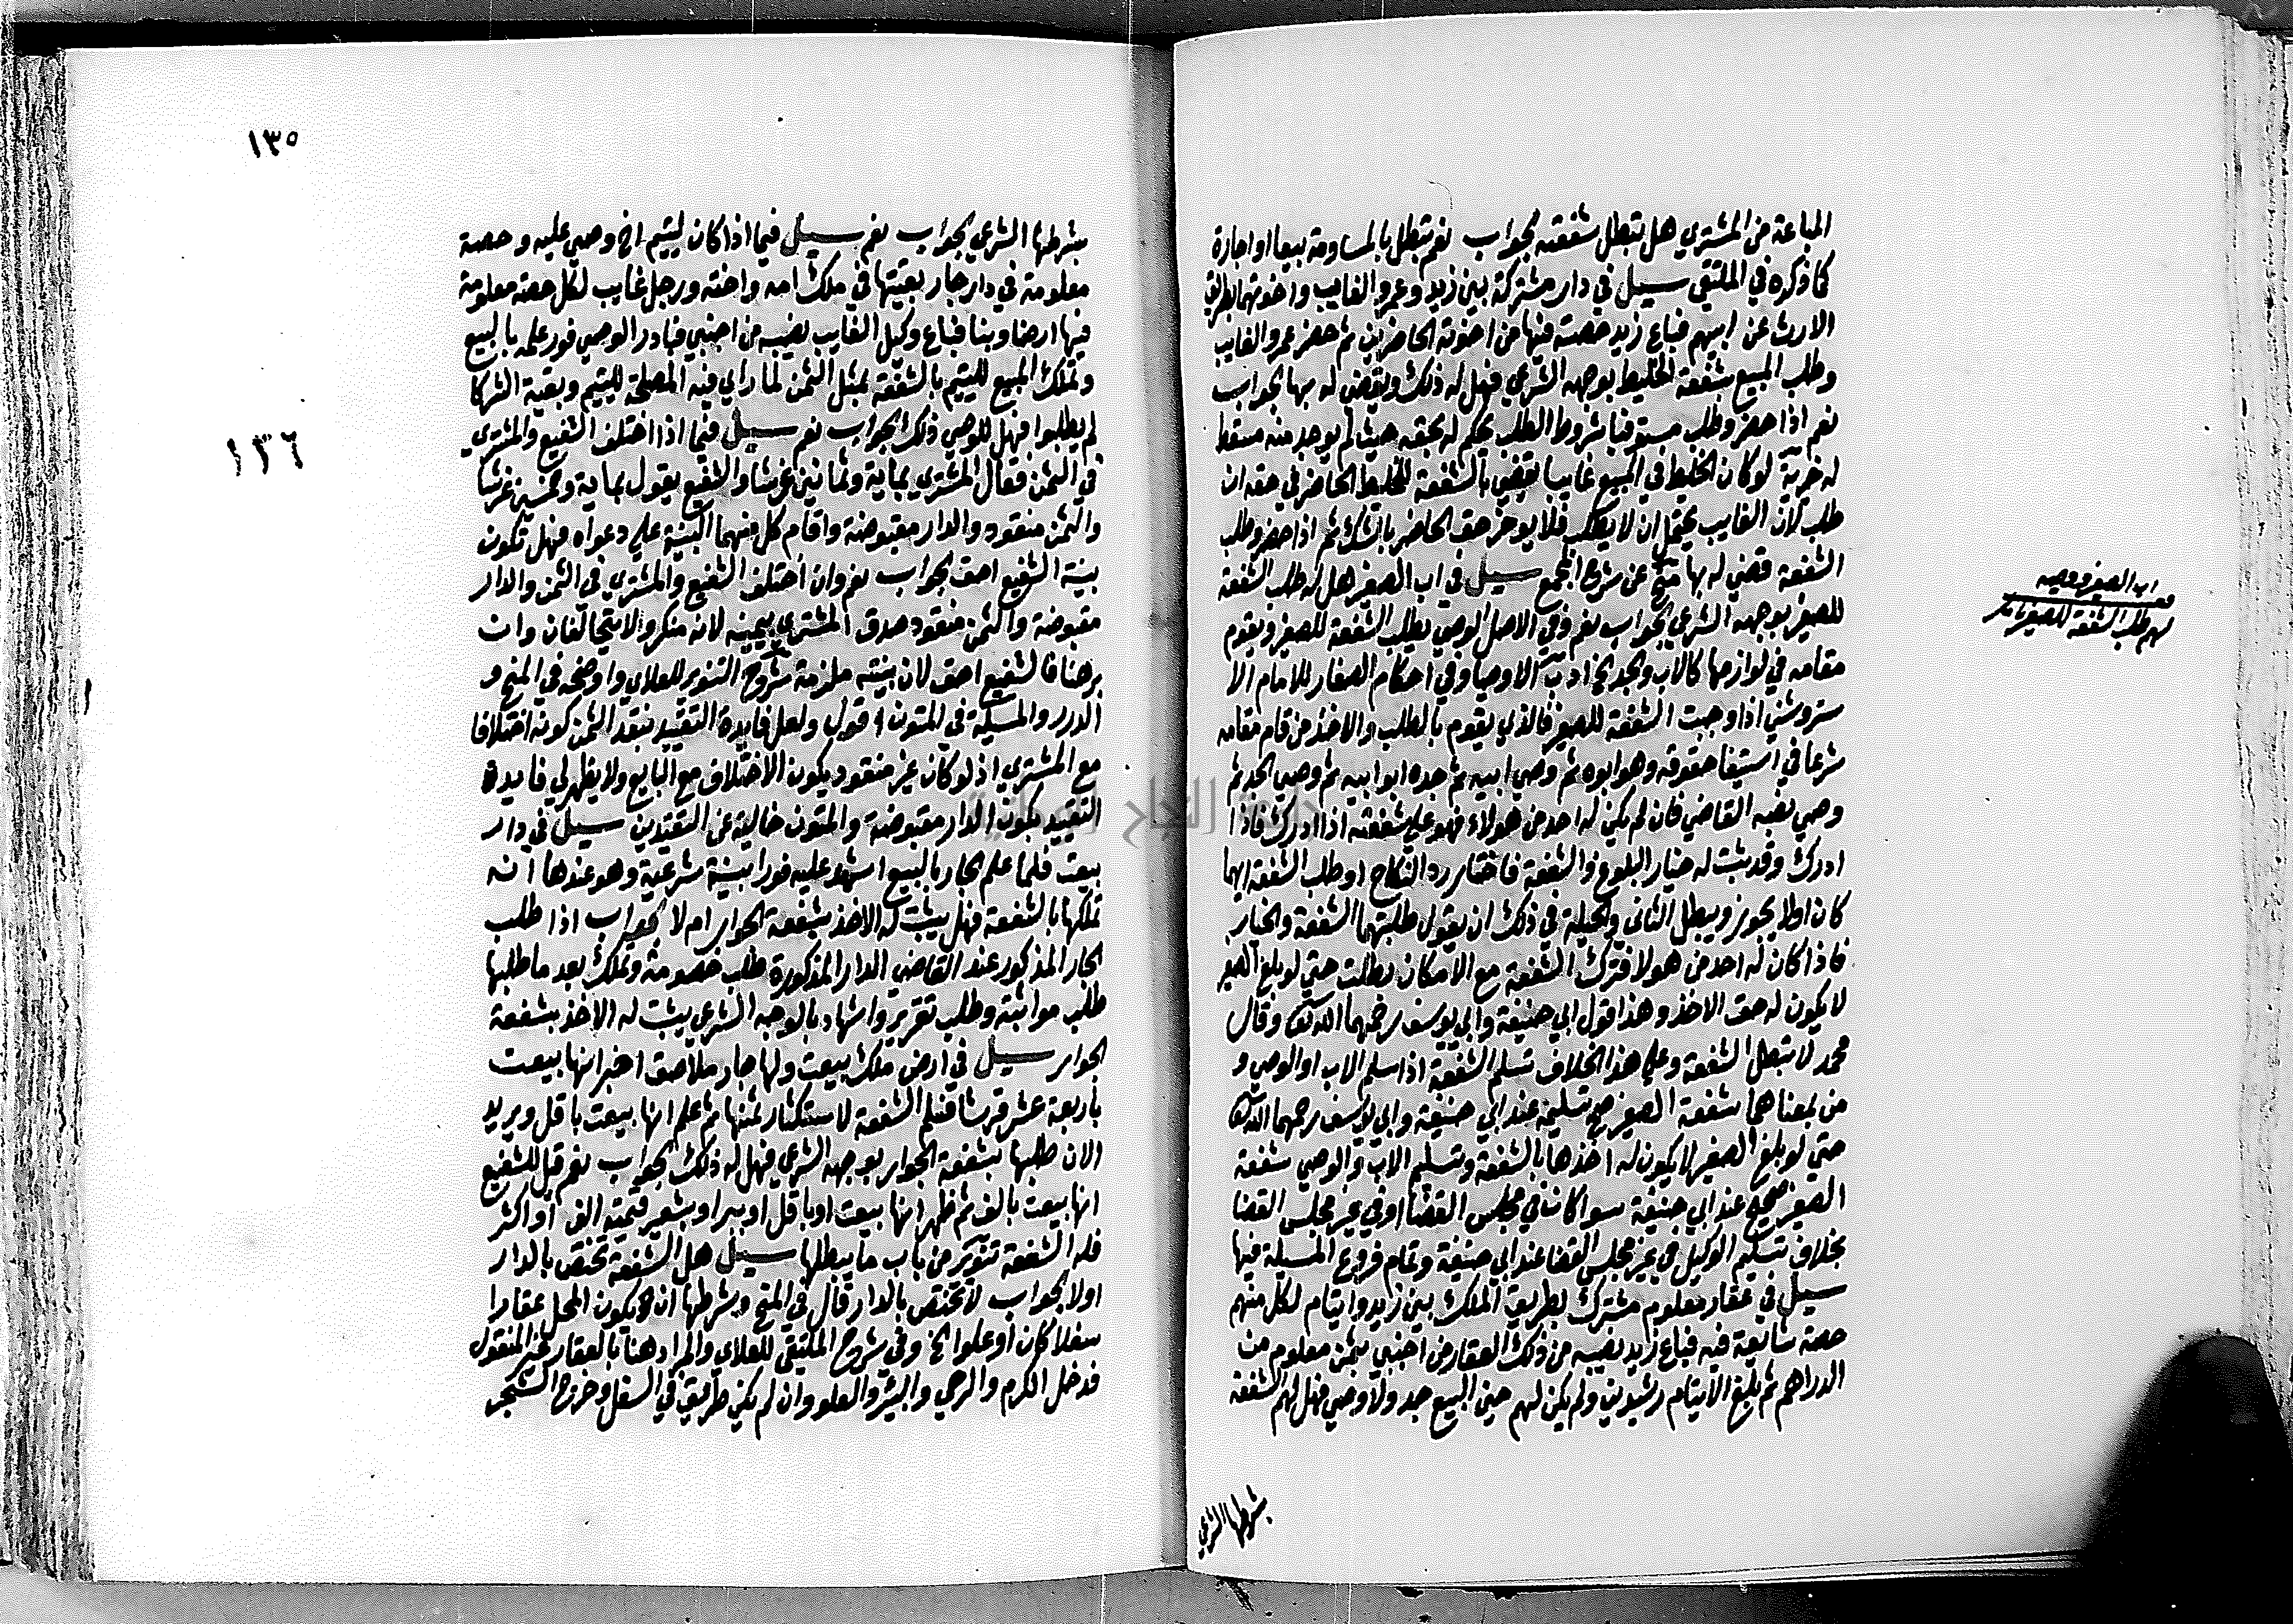 المباعة من المشتري هل تبطل شفعته الجواب نعم تبطل بالمساومة بيعا او اجارة
كما ذكره في الملتقى سيل في دار مشتركة بين زيد وعمرو الغايب واخوتهما بطريق
الارث عن ابيهم فباع زيد حصته فيها من اخوته الحاضرين ثم حضر عمرو الغايب
وطلب المبيع بشفعة الخليط بوجهه الشرعي فهل له ذلك ويقضى له بها الجواب
نعم اذا حضر وطلب مستوفيا شروط الطلب يحكم له بحقه حيث لم يوجد منه مسقط
له خيرية لو كان الخليط في المبيع غايبا يقضي بالشفعة للخليط الحاضر في حقه ان
طلب لان الغايب يحتمل ان لا يطلب فلا يوخر حق الحاضر بالشك ثم اذا حضر وطلب
الشفعة قضي له بها منح عن شرح المجمع سيل في اب الصغير هل له طلب الشفعة
للصغير بوجهه الشرعي الجواب نعم وفي الاصل الوصي يطلب الشفعة للصغير ويقوم
مقامه في لوازمها كالاب والجد الخ ادب الاوصيا وفي احكام الصغار للامام الا
ستروشني اذا وجبت الشفعة للصغير فالذي يقوم بالطلب والاخذ من قام مقامه
شرعا في استيفا حقوقه وهو ابوه ثم وصي ابيه ثم جده ابو ابيه ثم وصي الجد ثم
وصي نصبه القاضي فان لم يكن له احد من هولاء فهو على شفعته اذا ادرك فاذا
ادرك وقد ثبت له خيار البلوغ والشفعة فاختار رد النكاح او طلب الشفعة ايهما
كان اولا يجوز ويبطل الثاني والحيلة في ذلك ان يقول طلبتهما الشفعة والخيار
فاذا كان له احد من هولا فترك الشفعة مع الامكان بطلت حتى لو بلغ الصغير
لا يكون له حق الاخذ وهذا قول ابي حنيفة وابي يوسف رحمهما الله تعالى وقال
محمد لا تبطل الشفعة وعلى هذا الخلاف تسليم الشفعة اذا سلم الاب او الوصي و
من بمعناهما شفعة الصغير صح تسليمه عند ابي حنيفة وابي يوسف رحمهما الله
حتى لو بلغ الصغير لا يكون له اخذها بالشفعة وتسليم الاب والوصي شفعة
الصغير صحيح عند ابي حنيفة سوا كان في مجلس القضا او في غير مجلس القضا
بخلاف تسليم الوكيل في غير مجلس القضا عند ابي حنيفة وتمام فروع المسيلة فيها
سيل في عقار معلوم مشترك بطريق الملك بين زيد وايتام لكل منهم
حصة شايعة فيه فباع زيد نصيبه من ذلك العقار من اجنبي بثمن معلوم من
الدراهم ثم بلغ الايتام رشيدين ولم يكن لهم حين البيع جد ولا وصي فهل لهم الشفعة
بشرطها الشرعي
اب الصغير ووصيه
لهم طلب الشفعة للصغير
١٣٥
١٣٦
بشرطها الشرعي الجواب نعم سيل فيما اذا كان ليتيم اخ وصي عليه وحصة
معلومة في دار جار بقيتها في ملك امه واخته ورجل غايب لكل حصة معلومة
فيها ارضا وبنا فباع وكيل الغايب نصيبه من اجنبي فبادر الوصي فور علمه بالبيع
وتملك المبيع لليتيم بالشفعة بمثل الثمن لما راى فيه المصلحة لليتيم وبقية الشركا
لم يطلبوا فهل للوصي ذلك الجواب نعم سيل فيما اذا اختلف الشفيع والمشتري
في الثمن فقال المشتري بماية وثمانين غرشا والشفيع يقول بماية وخمسين غرشا
والثمن منقود والدار مقبوضة واقام كل منهما البينة على دعواه فهل تكون
بينة الشفيع احق الجواب نعم وان اختلف الشفيع والمشتري في الثمن والدار
مقبوضة والثمن منقود صدق المشتري بيمينه لانه منكر ولا يتحالفان وان
برهنا فالشفيع احق لان بينته ملزمة شرح التنوير للعلاي واوضحه في المنح و
الدرر والمسيلة في المتون اقول ولعل فايدة التقييد بنقد الثمن كونه اختلافا
مع المشتري اذ لو كان غير منقود يكون الاختلاف مع البايع ولا يظهر لي فايدة
التقييد بكون الدار مقبوضة والمتون خالية عن التقييدين سيل في دار
بيعت فلما علم الجار بالبيع اشهد عليه فورا بينة شرعية وهو عندها انه
تملكها بالشفعة فهل يثبت له الاخذ بشفعة الجوار ام لا الجواب اذا طلب
الجار المذكور عند القاضي الدار المذكورة طلب خصومة وتملك بعد ما طلبها
طلب مواثبة وطلب تقرير واشهاد بالوجه الشرعي يثبت له الاخذ بشفعة
الجوار سيل في ارض ملك بيعت ولها جار ملاصق اخبر انها بيعت
باربعة عشر قرشا فسلم الشفعة لاستكثار ثمنها ثم علم انها بيعت باقل ويريد
الان طلبها بشفعة الجوار بوجهه الشرعي فهل له ذلك الجواب نعم قيل للشفيع
انها بيعت بالف ثم ظهر انها بيعت او باقل او ببر او بشعير قيمته الف او اكثر
فله الشفعة تنوير من باب ما يبطلها سيل هل الشفعة تختص بالدار
اولا الجواب لا تختص بالدار قال في المنح وشرطها ان يكون المحل عقارا
سفلا كان او علوا الخ وفي شرح الملتقى للعلاي والمراد هنا بالعقار غير المنقول
فدخل الكرم والرحى والبئر والعلو وان لم يكن طريقه في السفل وخرج الشجر